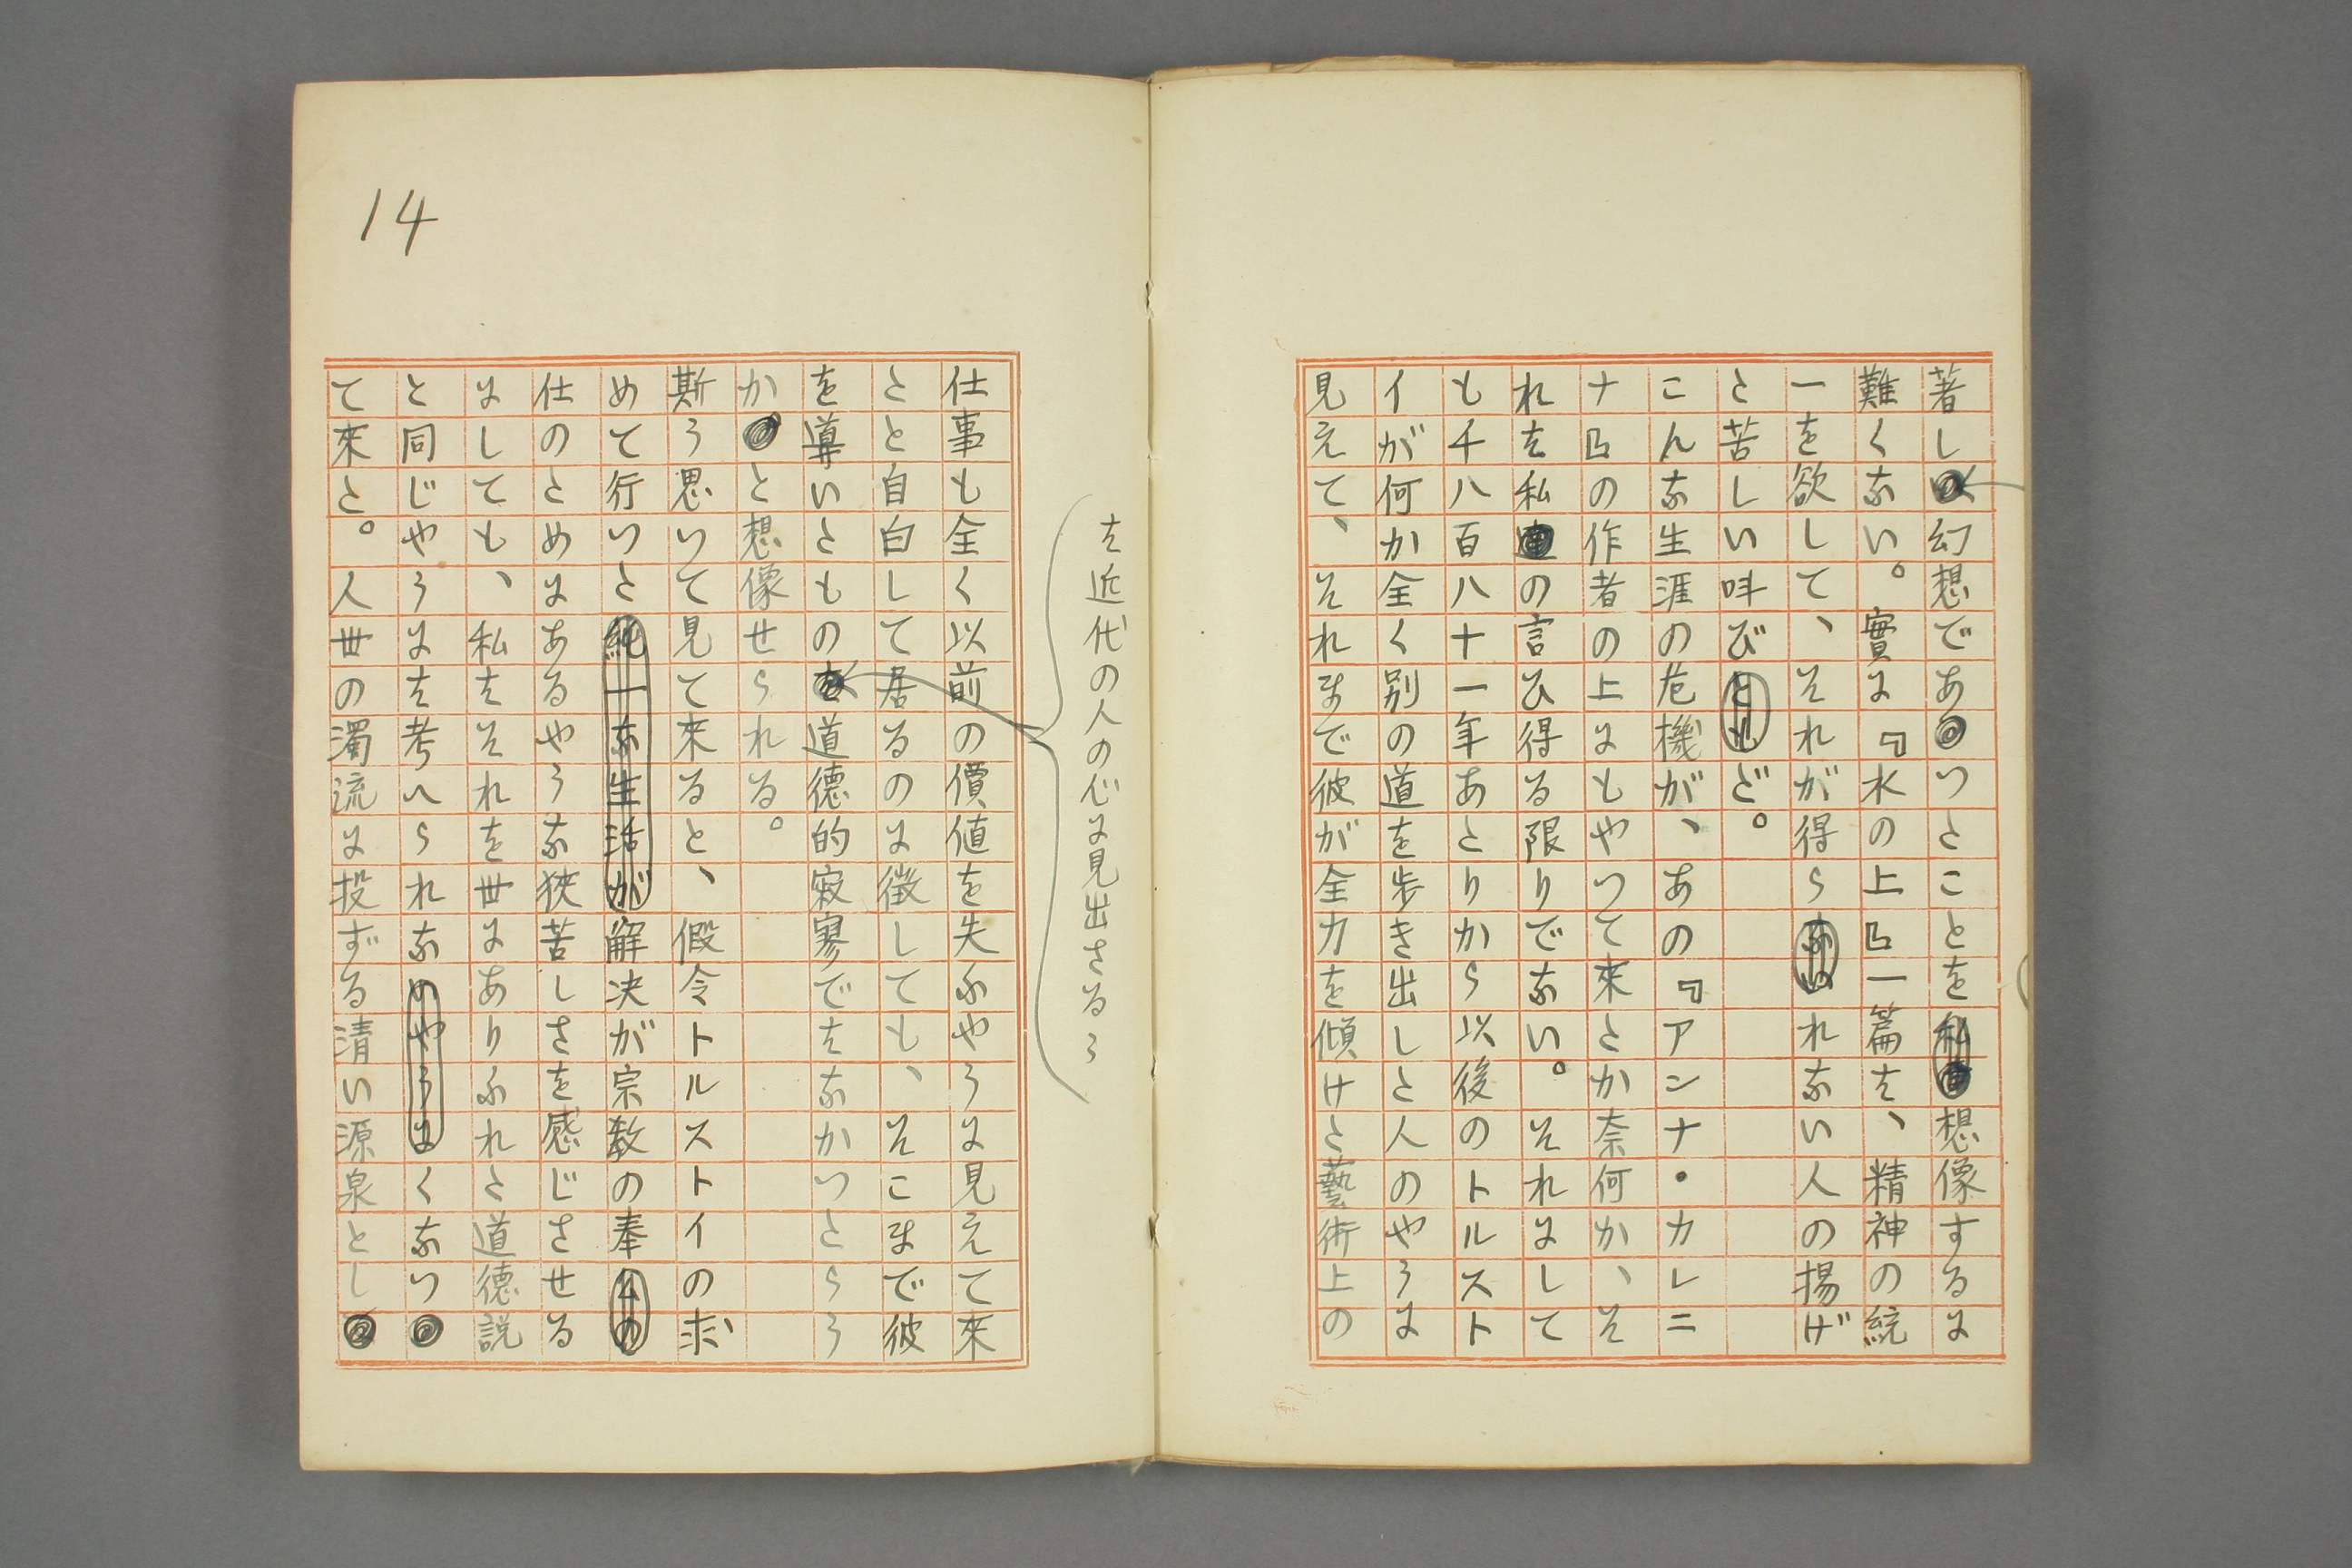 著し幻想であつたことを私想像するに
難くない。實に『水の上』一篇は、精神の統
一を欲して、それが得られない人の揚げ
た苦しい叫びともだ。
こんな生涯の危機が、あの『アンナ・カレニ
ナ』の作者の上にもやつて來たか奈何か、そ
れは私の言ひ得る限りでない。それにして
も千八百八十一年あたりから以後のトルスト
イが何か全く別の道を歩き出した人のやうに
見えて、それまで彼が全力を傾けた藝術上の
は近代の人の心に見出さるゝ
仕事も全く以前の價値を失ふやうに見えて來
たと自白して居るのに徴しても、そこまで彼
を導いたもの道德的寂寥ではなかつたらう
かと想像せられる。
斯う思つて見て來ると、假令トルストイの求
めて行つた純一な生活が解决が宗教の奉公の
仕のためにあるやうな狹苦しさを感じさせる
にしても、私はそれを世にありふれた道德説
と同じやうには考へられなのやうにくなつ
て來た。人世の濁流に投ずる清い源泉とし
14